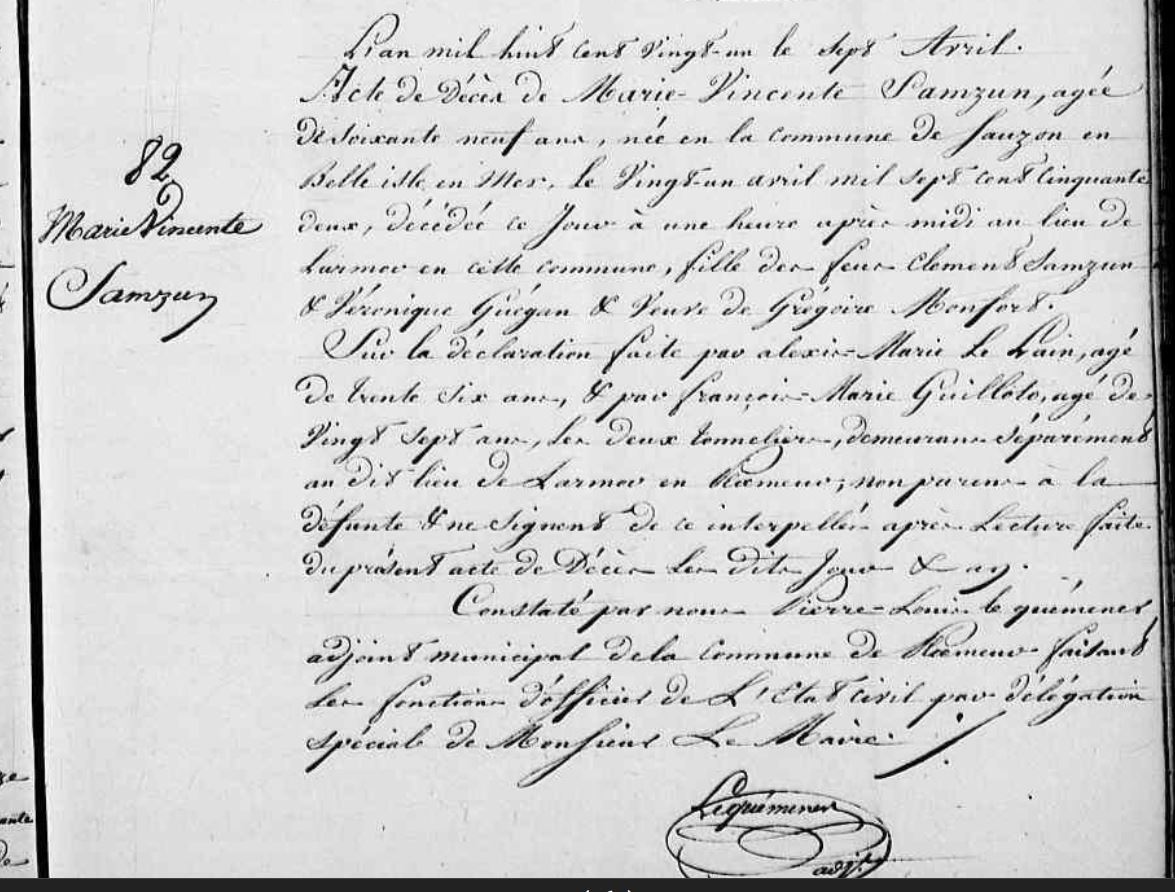 L'an mil huit cent vingt-un le sept Avril.
Acte de Décès de Marie-Vincente Samzun, agée
de soixante neuf ans, née en la commune de Sauzon en
Belle isle en Mer, le Vingt-un avril mil sept cent cinquante
deux, décédée ce Jour à une heure après midi au lieu de
Larmor en cette commune, fille des feus Clement Samzun
& Véronique Guégan & Veuve de Grégoire Monfort.
Sur la déclaration faite par alexis-Marie Le Lain, agé
de trente six ans, & par françois-Marie Guilloto, agé de
Vingt sept ans, les deux tonneliers, demeurans séparément
au dit lieu de Larmor en Plœmeur; non parens à la
défunte & ne signent de ce interpellés après Lecture faite
du présent acte de Décès les dits Jour & an.
Constaté par nous Pierre-Louis le quémener
adjoint municipal de la Commune de Plœmeur faisant
les fonctions d'officier de L'Etat Civil par délégation
spéciale de Monsieur Le Maire.
82
Marie Vincente
Samzun
Lequémener
adjt.